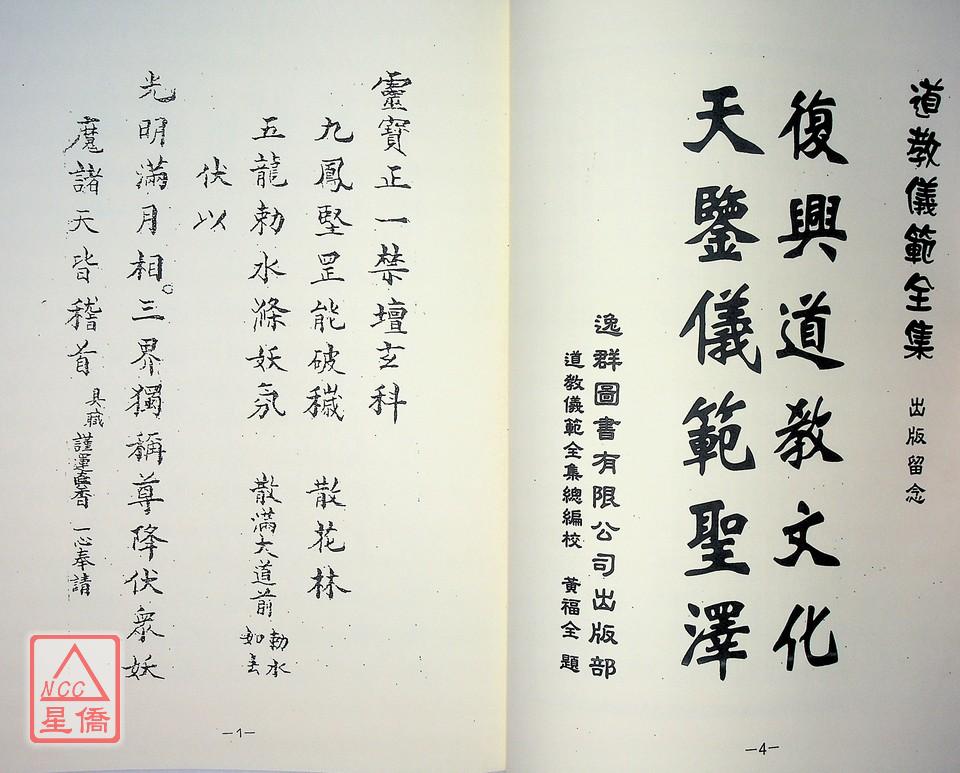 道教儀範全集 出版留念
復興道教文化
天鑒儀範聖澤
逸群圖書有限公司出版部
道教儀範全集總編校 黃福全 題
—4—
靈寶正一禁壇玄科
九鳳堅罡能破穢 散花林
五龍勅水滌妖氛 散滿大道前 勅水如去
伏以
光明滿月相。三界獨稱尊降伏眾妖
魔諸天皆稽首 具職 謹運真香 一心奉請
—1—
NCC
星僑